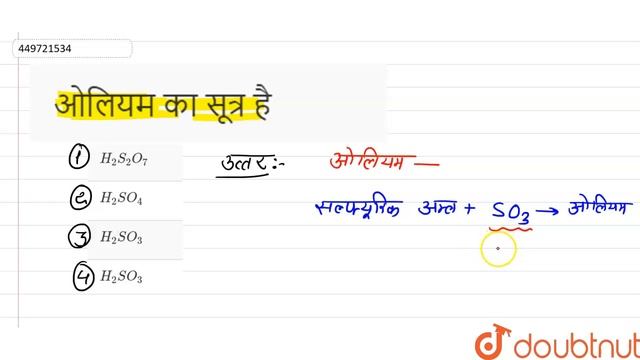 449721534
ओलियम का सूत्र है
① H₂S₂O₇
② H₂SO₄
③ H₂SO₃
④ H₂SO₃
उत्तर :- ओलियम —
सल्फ्यूरिक अम्ल + SO₃ → ओलियम
doubtnut